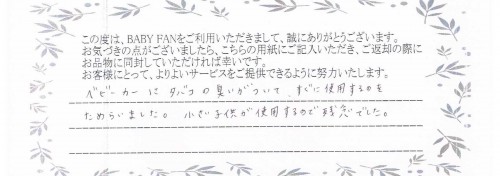 この度は、BABY FANをご利用いただきまして、誠にありがとうございます。
お気づきの点がございましたら、こちらの用紙にご記入いただき、ご返却の際に
お品物に同封していただければ幸いです。
お客様にとって、よりよいサービスをご提供できるように努力いたします。
ベビーカーに タバコの臭いがついて、すぐに使用するのを
ためらいました。 小さい子供が使用するので残念でした。